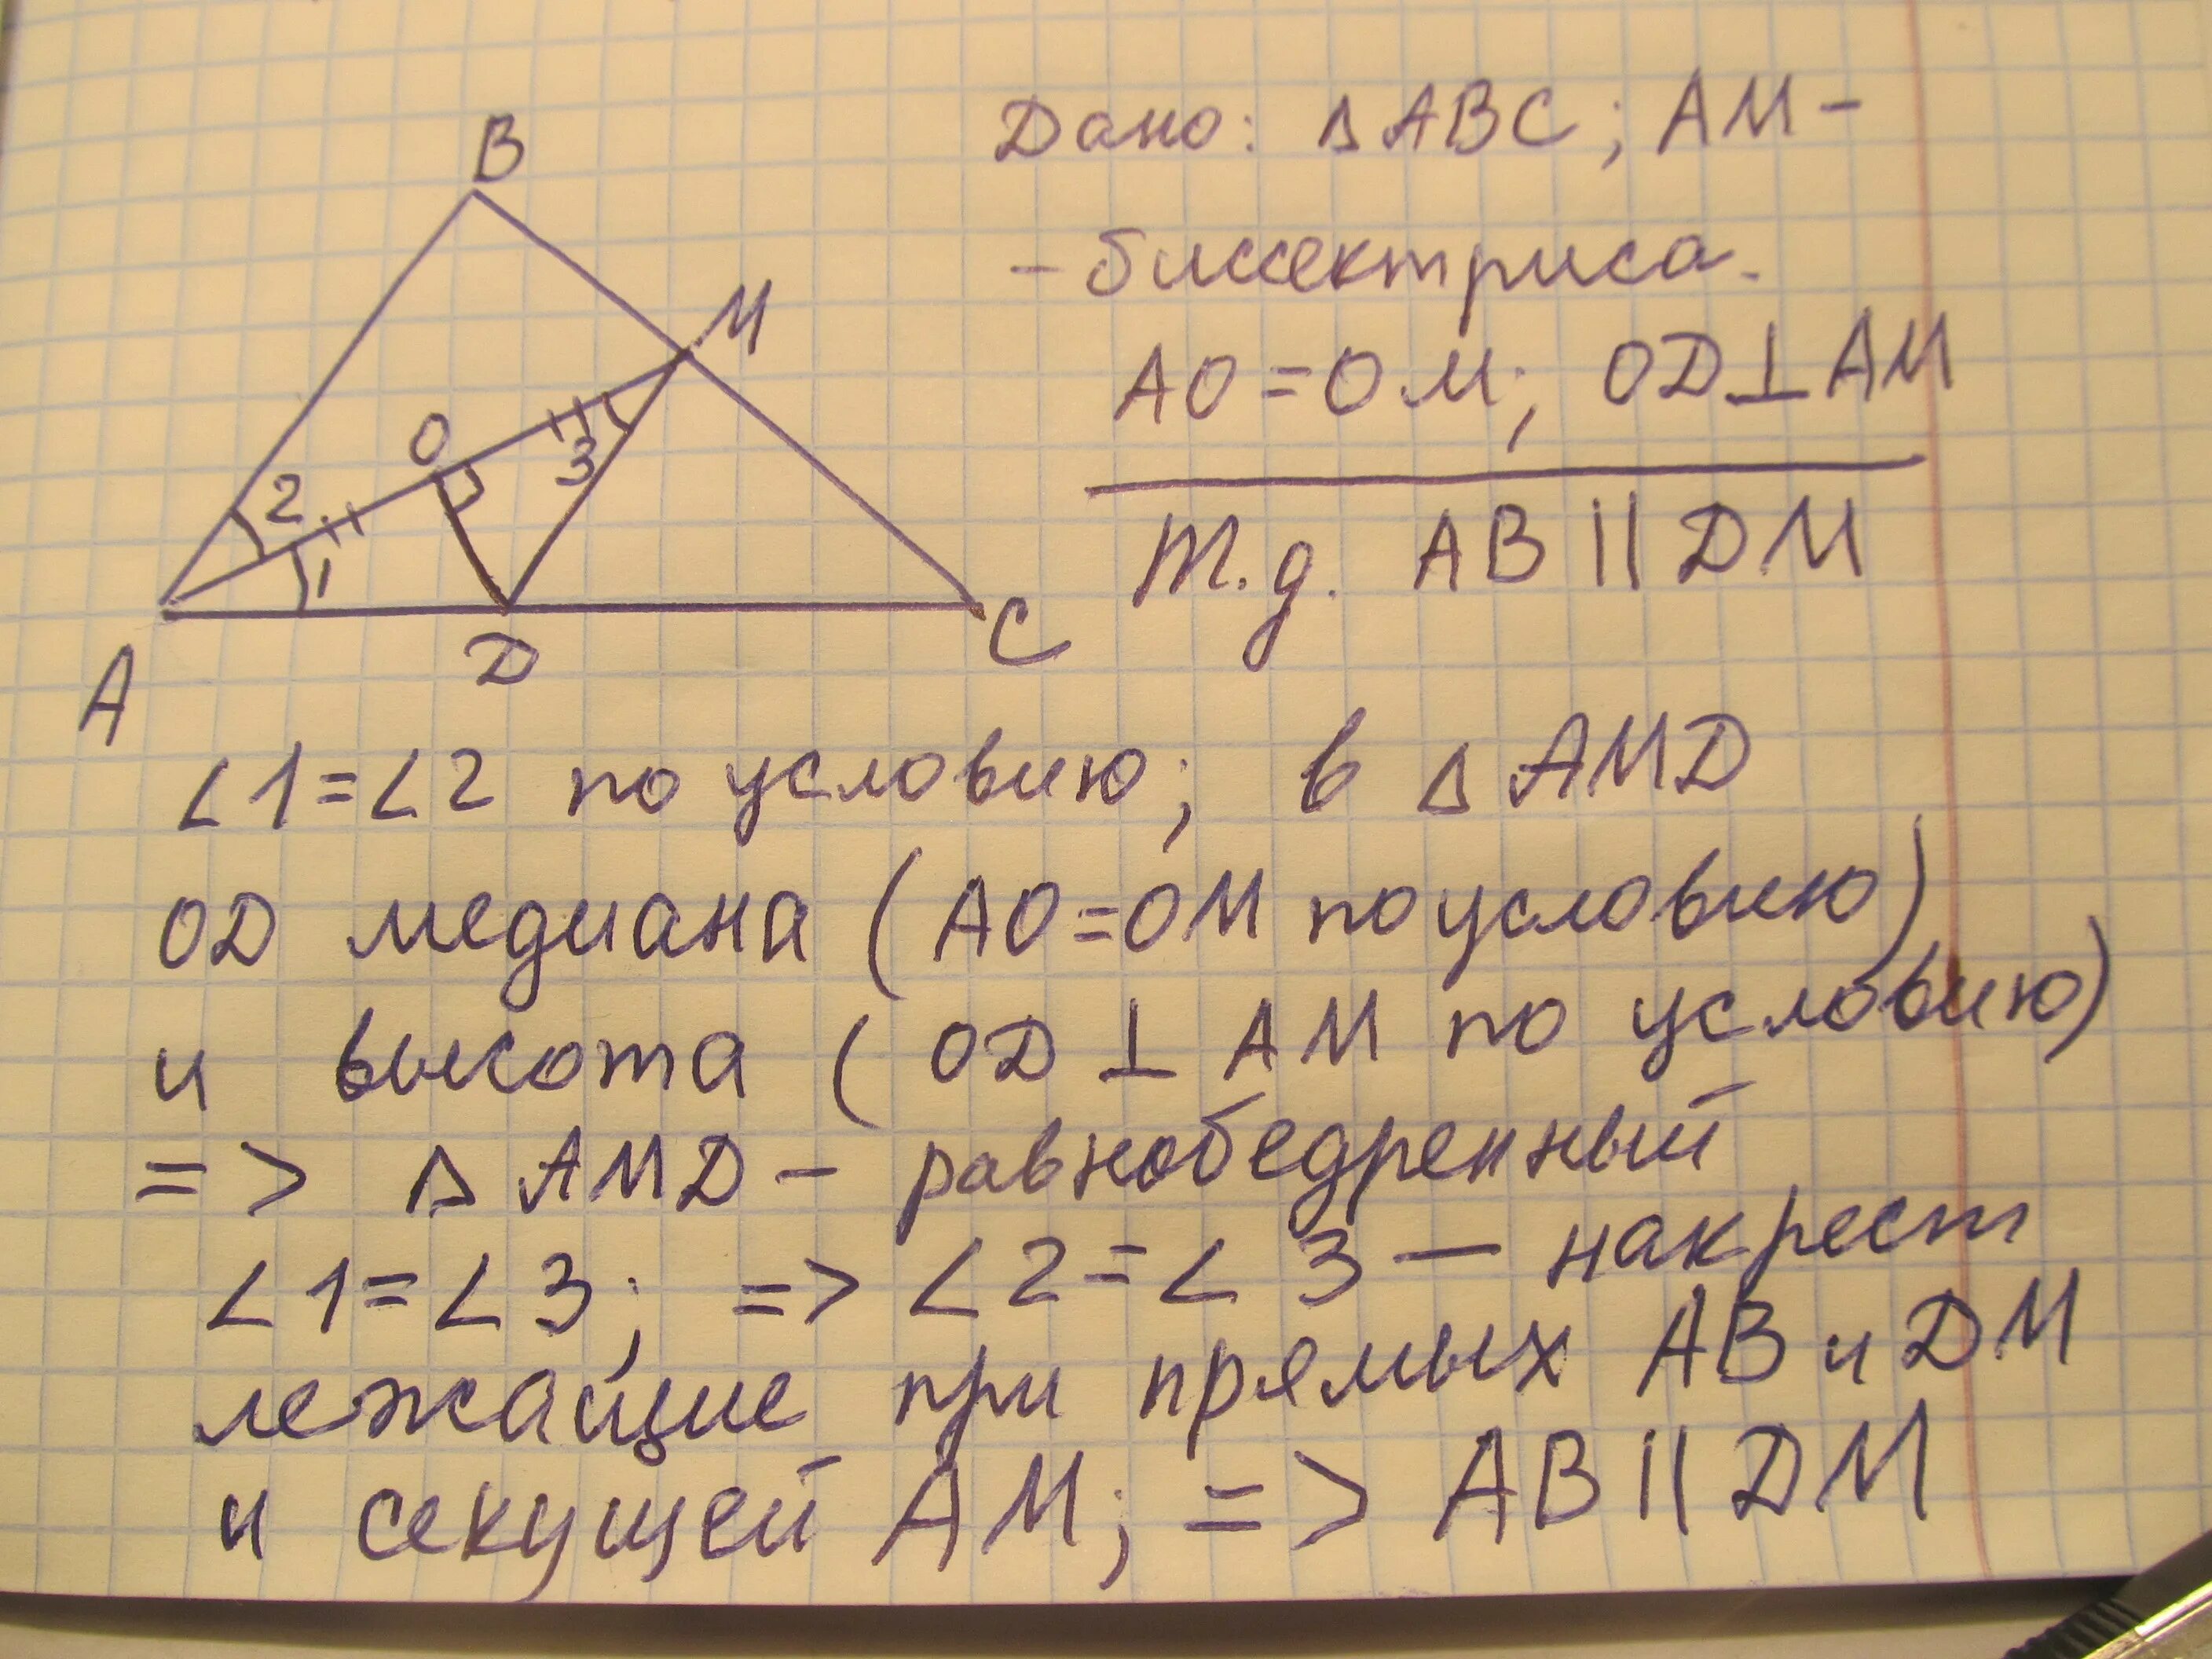 Дано: ΔABC; AM -
- биссектриса.
AO = OM; OD⊥AM
Т.д. AB || DM
B
M
O
2
3
1
A
D
C
∠1=∠2 по условию; в ΔAMD
OD медиана (AO=OM по условию)
и высота (OD ⊥ AM по условию)
=> ΔAMD - равнобедренный
∠1=∠3; => ∠2=∠3 — накрест
лежащие при прямых AB и DM
и секущей AM; => AB || DM